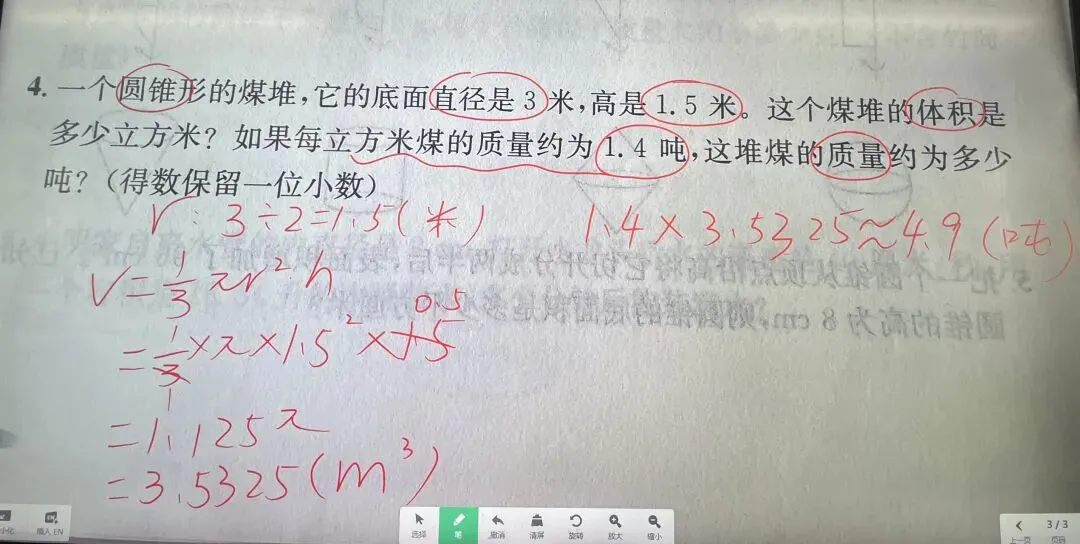 4. 一个圆锥形的煤堆,它的底面直径是 3 米,高是 1.5 米。这个煤堆的体积是
多少立方米？如果每立方米煤的质量约为 1.4 吨,这堆煤的质量约为多少
吨？(得数保留一位小数)
r: 3÷2=1.5(米)
1.4×3.5325≈4.9(吨)
V=1/3πr²h
0.5
=1/3×π×1.5²×1.5
1
=1.125π
=3.5325(m³)
小化
插入 EN
选择
笔
撤消
清屏
旋转
放大
缩小
上一页
3/3
页码